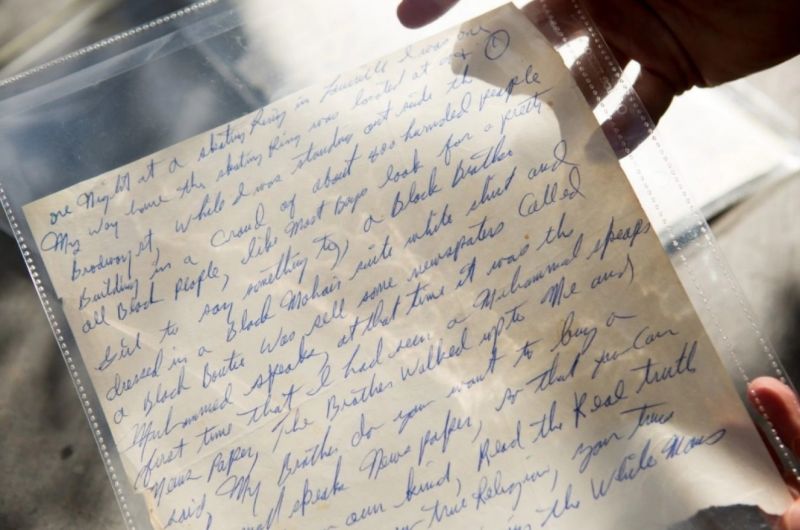 one Night at a skating Ring in I was on
①
My way home the skating Ring was located at
Brodway st, While I was standing out side the
Building in a Croud of about 400 hunded people
all Black People, like Most Boys look for a pretty
Girl to say something to, a Black Brother
dressed in a Black Mohair suite white shirt and
a Black Boutie Was sell some newspapers Called
Muhammed speaks, at that time it was the
first time that I had seen a Muhammad speaps
News Paper, The Brother Walked upto Me and
said, My Brother, do you want to buy a
speaks News paper, so that you Can
own kind, Read the Real truth
true Religion, your true
the White Mans